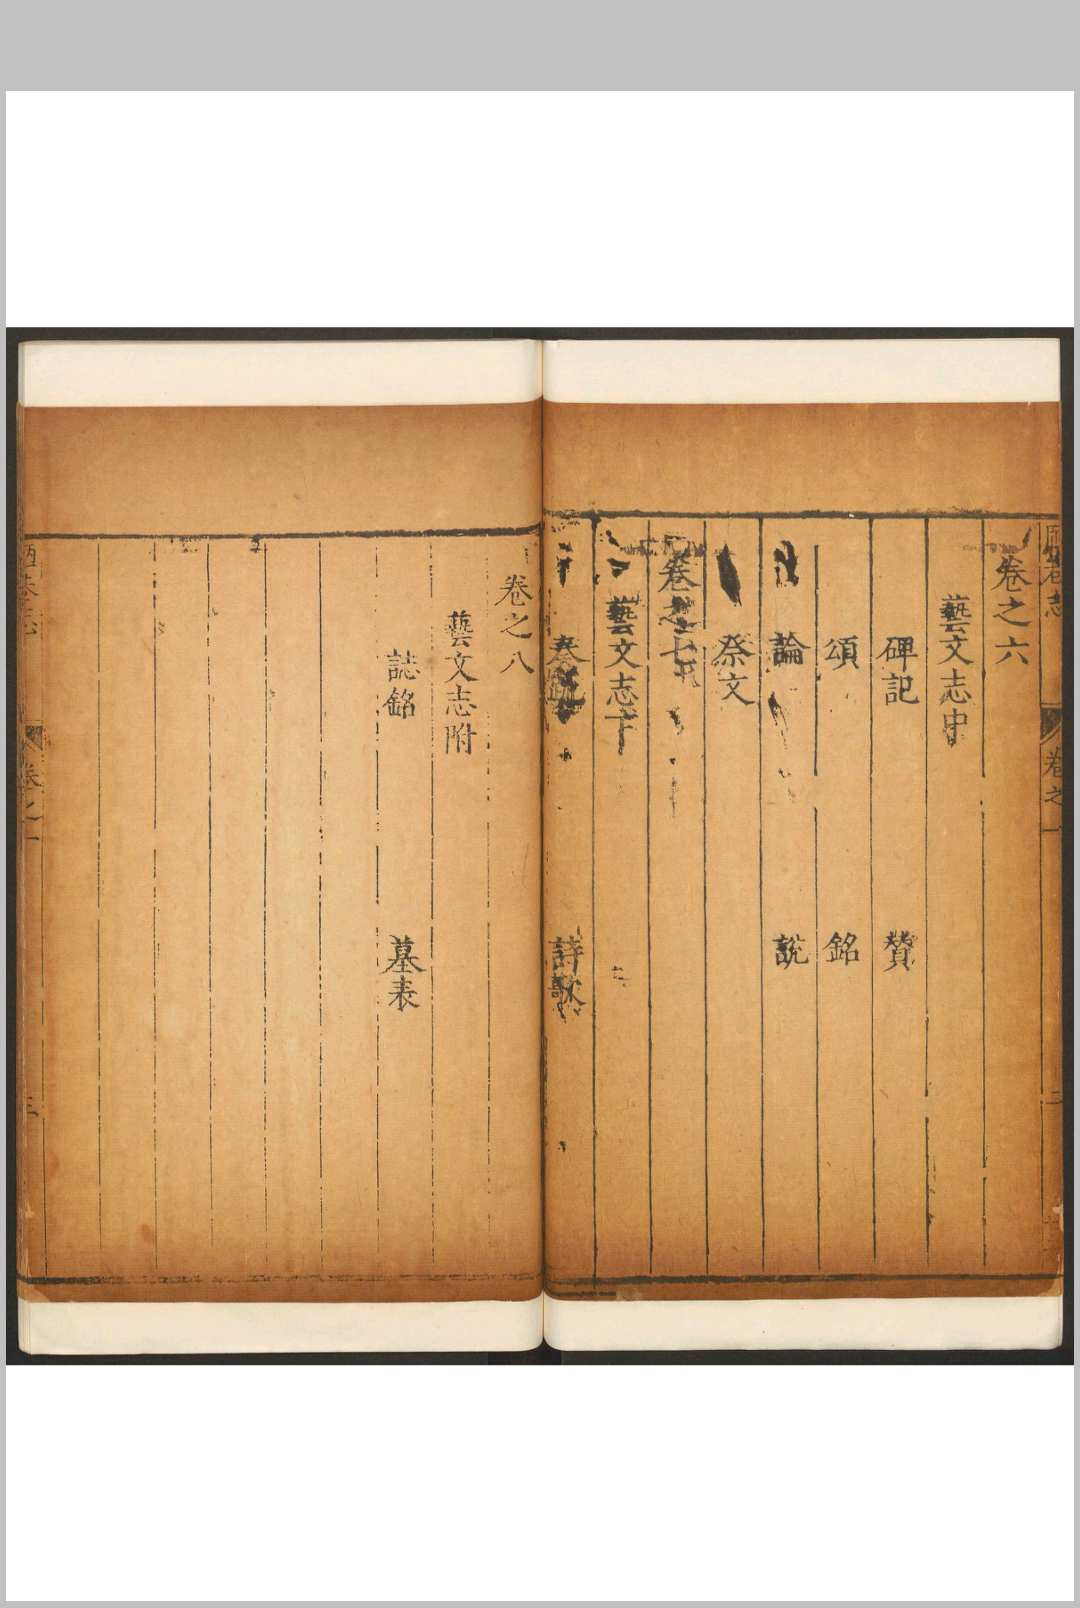 卷之六
藝文志中
碑記 贊
頌 銘
論 說
祭文
卷之七
藝文志下
奏疏 詩歌
卷之八
藝文志附
誌銘 墓表
卷之一